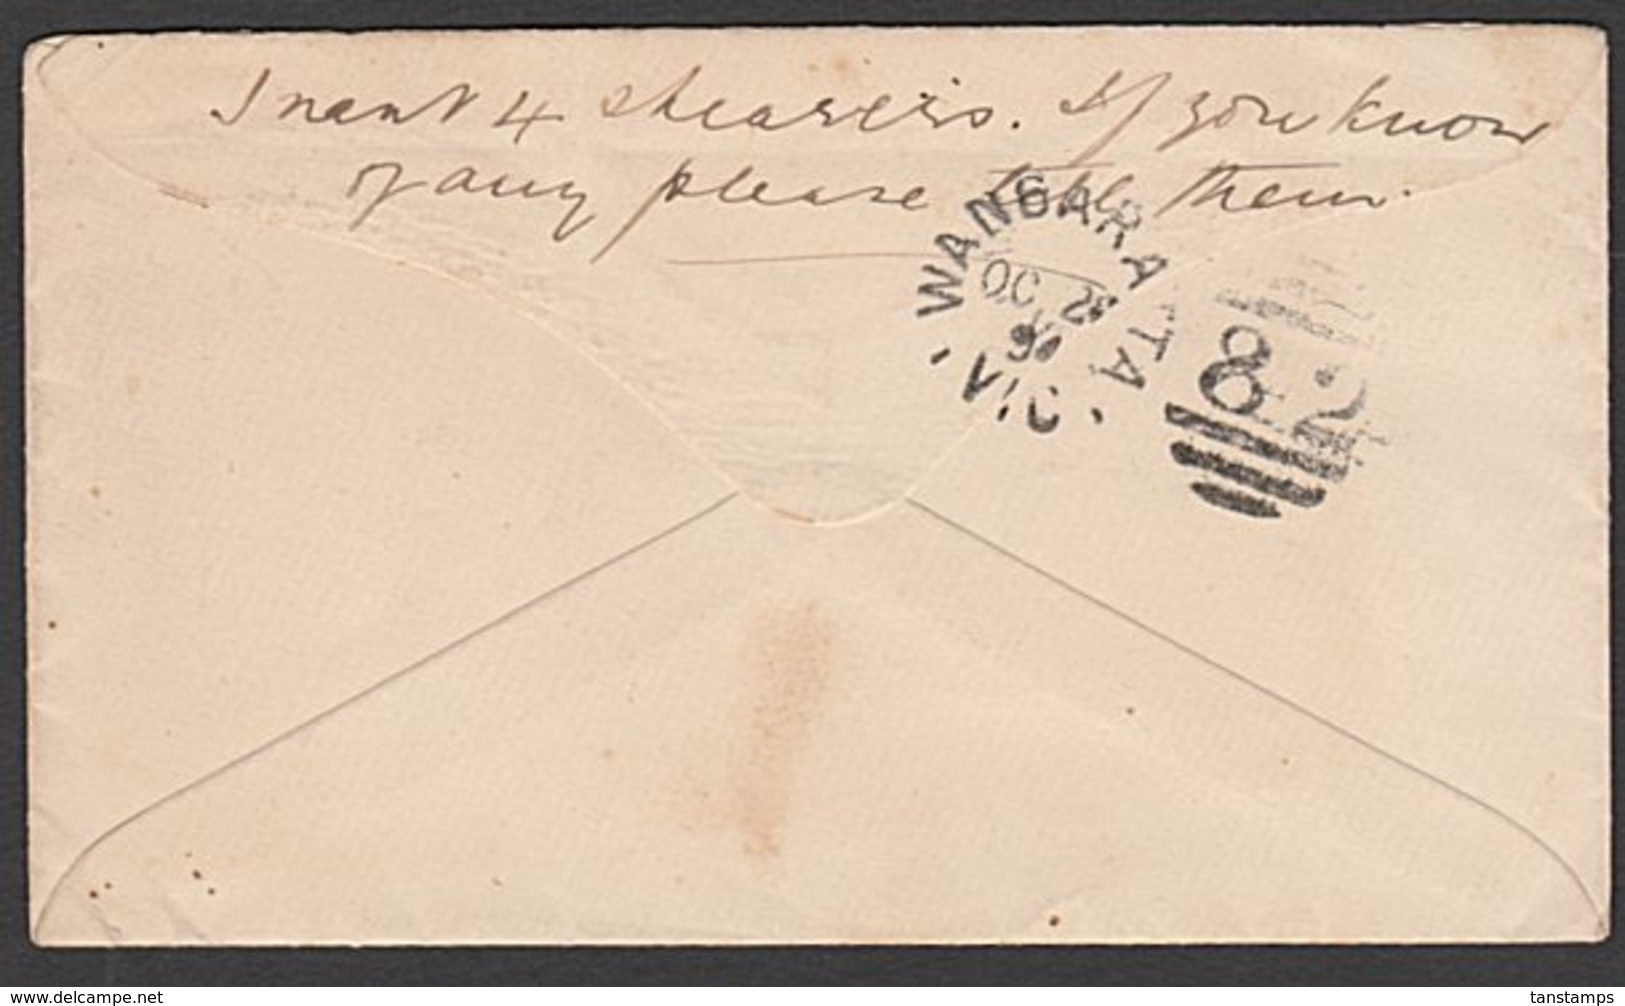 I want 4 shearers. If you know
of any please tell them.
WANGARATTA
OC 28
9
VIC
82
www.delcampe.net
tanstamps